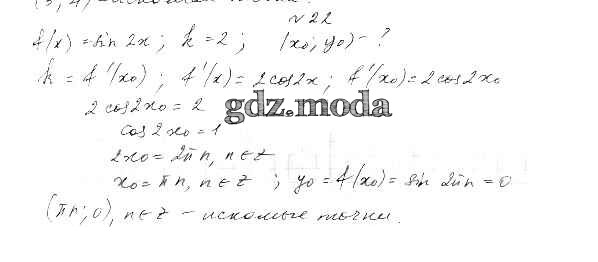 (3, 4) - искомая точка.
№ 22
f(x) = sin 2x; k = 2; (x₀; y₀) - ?
k = f'(x₀); f'(x) = 2cos2x; f'(x₀) = 2cos2x₀
2 cos2x₀ = 2
gdz.moda
cos 2x₀ = 1
2x₀ = 2πn, n∈Z
x₀ = πn, n∈Z; y₀ = f(x₀) = sin 2πn = 0
(πn; 0), n∈Z - искомые точки.